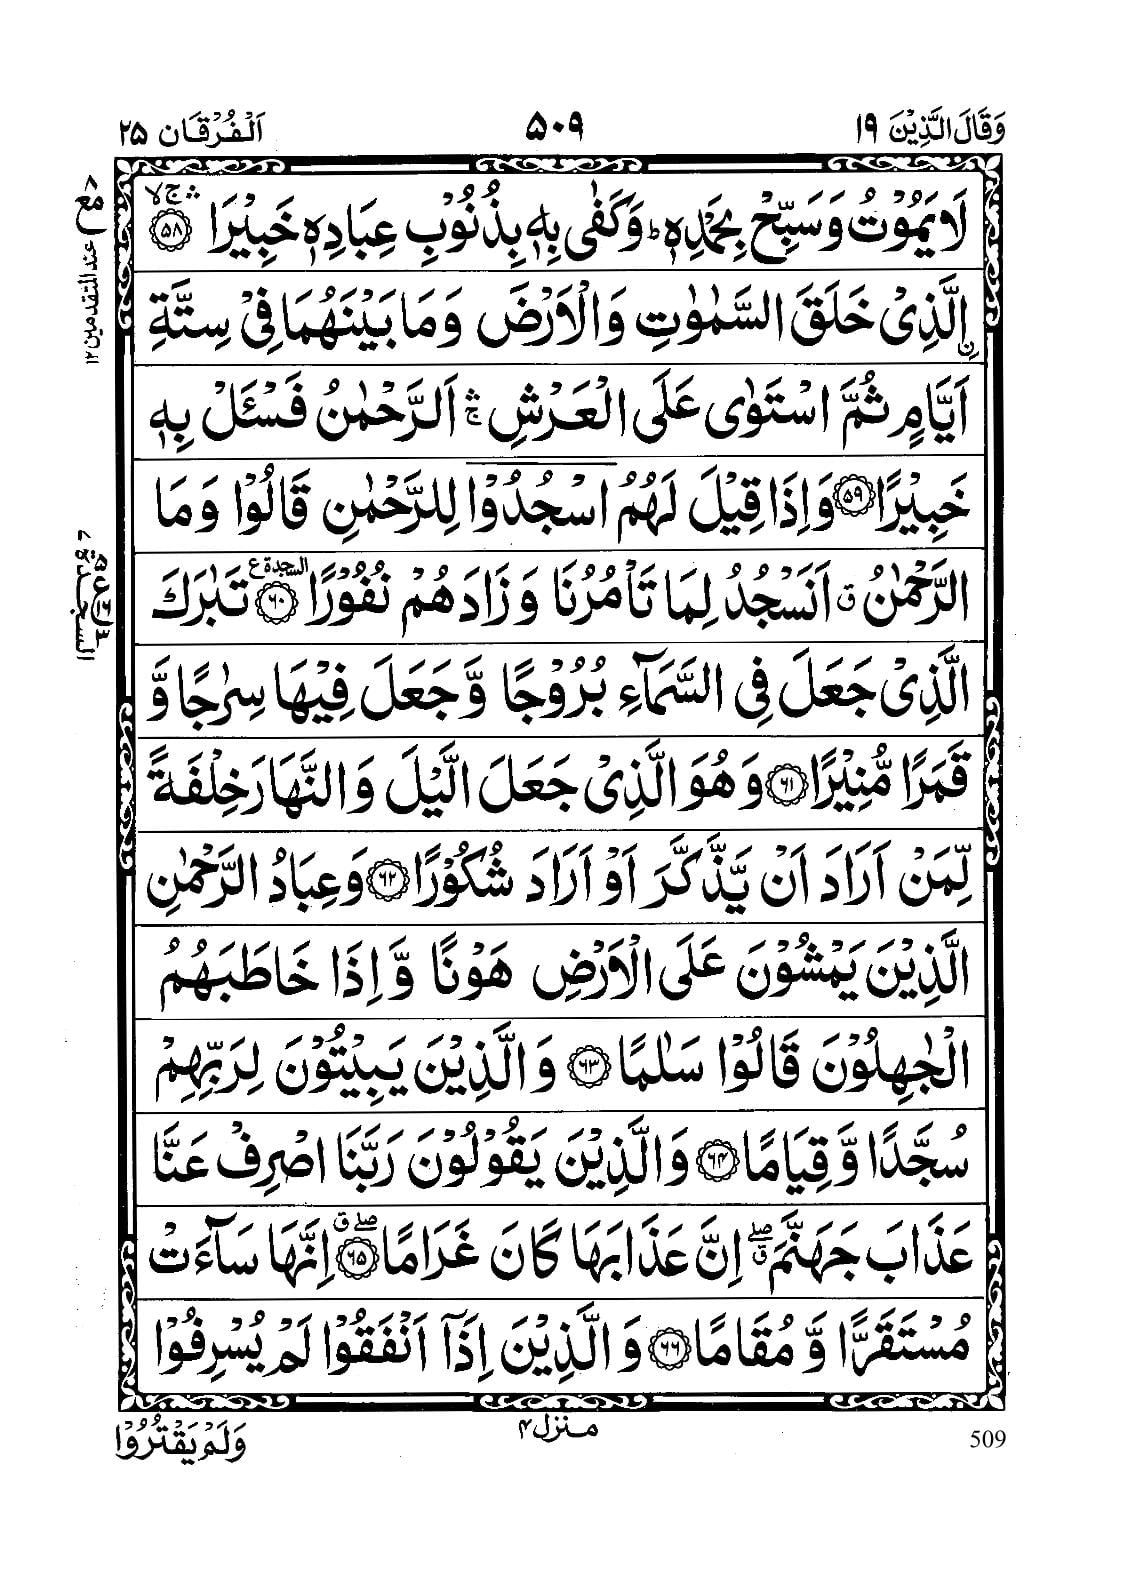 وَقَالَ الَّذِيْنَ ١٩
٥٠٩
اَلْفُرْقَان ٢٥
لَا يَمُوْتُ وَسَبِّحْ بِحَمْدِهٖ ؕ وَكَفٰى بِهٖ بِذُنُوْبِ عِبَادِهٖ خَبِيْرَا ۛۚۙ ﴿٥٨﴾
اِ۟لَّذِىْ خَلَقَ السَّمٰوٰتِ وَالْاَرْضَ وَمَا بَيْنَهُمَا فِىْ سِتَّةِ
اَيَّامٍ ثُمَّ اسْتَوٰى عَلَى الْعَرْشِ ۛۚ اَلرَّحْمٰنُ فَسْـَٔلْ بِهٖ
خَبِيْرًا ﴿٥٩﴾ وَاِذَا قِيْلَ لَهُمُ اسْجُدُوْا لِلرَّحْمٰنِ قَالُوْا وَمَا
الرَّحْمٰنُ ق اَنَسْجُدُ لِمَا تَاْمُرُنَا وَزَادَهُمْ نُفُوْرًا السجدة ع ﴿٦٠﴾ تَبٰرَكَ
الَّذِىْ جَعَلَ فِى السَّمَآءِ بُرُوْجًا وَّجَعَلَ فِيْهَا سِرٰجًا وَّ
قَمَرًا مُّنِيْرًا ﴿٦١﴾ وَهُوَ الَّذِىْ جَعَلَ الَّيْلَ وَالنَّهَارَ خِلْفَةً
لِّمَنْ اَرَادَ اَنْ يَّذَّكَّرَ اَوْ اَرَادَ شُكُوْرًا ﴿٦٢﴾ وَعِبَادُ الرَّحْمٰنِ
الَّذِيْنَ يَمْشُوْنَ عَلَى الْاَرْضِ هَوْنًا وَّاِذَا خَاطَبَهُمُ
الْجٰهِلُوْنَ قَالُوْا سَلٰمًا ﴿٦٣﴾ وَالَّذِيْنَ يَبِيْتُوْنَ لِرَبِّهِمْ
سُجَّدًا وَّقِيَامًا ﴿٦٤﴾ وَالَّذِيْنَ يَقُوْلُوْنَ رَبَّنَا اصْرِفْ عَنَّا
عَذَابَ جَهَنَّمَ ۖق اِنَّ عَذَابَهَا كَانَ غَرَامًا ۖق ﴿٦٥﴾ اِنَّهَا سَآءَتْ
مُسْتَقَرًّا وَّمُقَامًا ﴿٦٦﴾ وَالَّذِيْنَ اِذَآ اَنْفَقُوْا لَمْ يُسْرِفُوْا
مع ٨
عند المتقدمين ١٢
السجدة ٧
ع
وَلَمْ يَقْتُرُوْا
منزل ٤
509